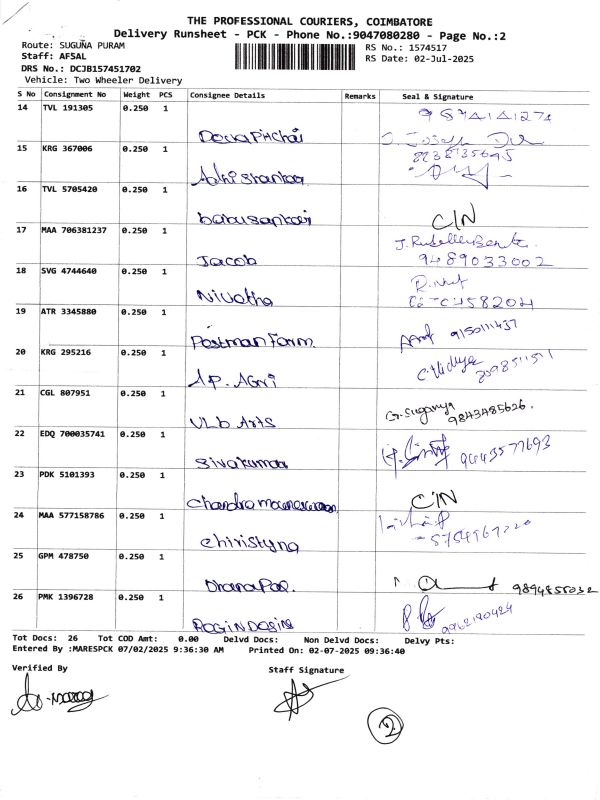 THE PROFESSIONAL COURIERS, COIMBATORE
Delivery Runsheet - PCK - Phone No.:9047080280 - Page No.:2
Route: SUGUNA PURAM
RS No.: 1574517
Staff: AFSAL
RS Date: 02-Jul-2025
DRS No.: DCJB157451702
Vehicle: Two Wheeler Delivery
S No Consignment No Weight PCS Consignee Details Remarks Seal & Signature
14 TVL 191305 0.250 1
15 KRG 367006 0.250 1
16 TVL 5705420 0.250 1
babusankar CIN
17 MAA 706381237 0.250 1
Jacob 9489033002
18 SVG 4744640 0.250 1
Nivetha
19 ATR 3345880 0.250 1
Postman Form
20 KRG 295216 0.250 1
AP. AGri C. Vidhya
21 CGL 807951 0.250 1
VLb Arts G. Suganya 9843485626.
22 EDQ 700035741 0.250 1
Sivakumar 9443577693
23 PDK 5101393 0.250 1
CIN
24 MAA 577158786 0.250 1
Chiristyna
25 GPM 478750 0.250 1
DhanaPal
26 PMK 1396728 0.250 1
Tot Docs: 26 Tot COD Amt: 0.00 Delvd Docs: Non Delvd Docs: Delvy Pts:
Entered By :MARESPCK 07/02/2025 9:36:30 AM Printed On: 02-07-2025 09:36:40
Verified By Staff Signature
2